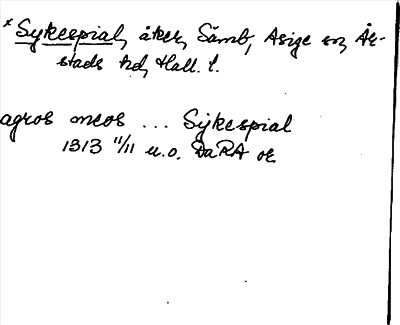 * Sykespial, åker, Sämb, Asige sn, År-
stads hd, Hall. l.
agros meos ... Sykespial
1313 11/11 u.o. DaRA or